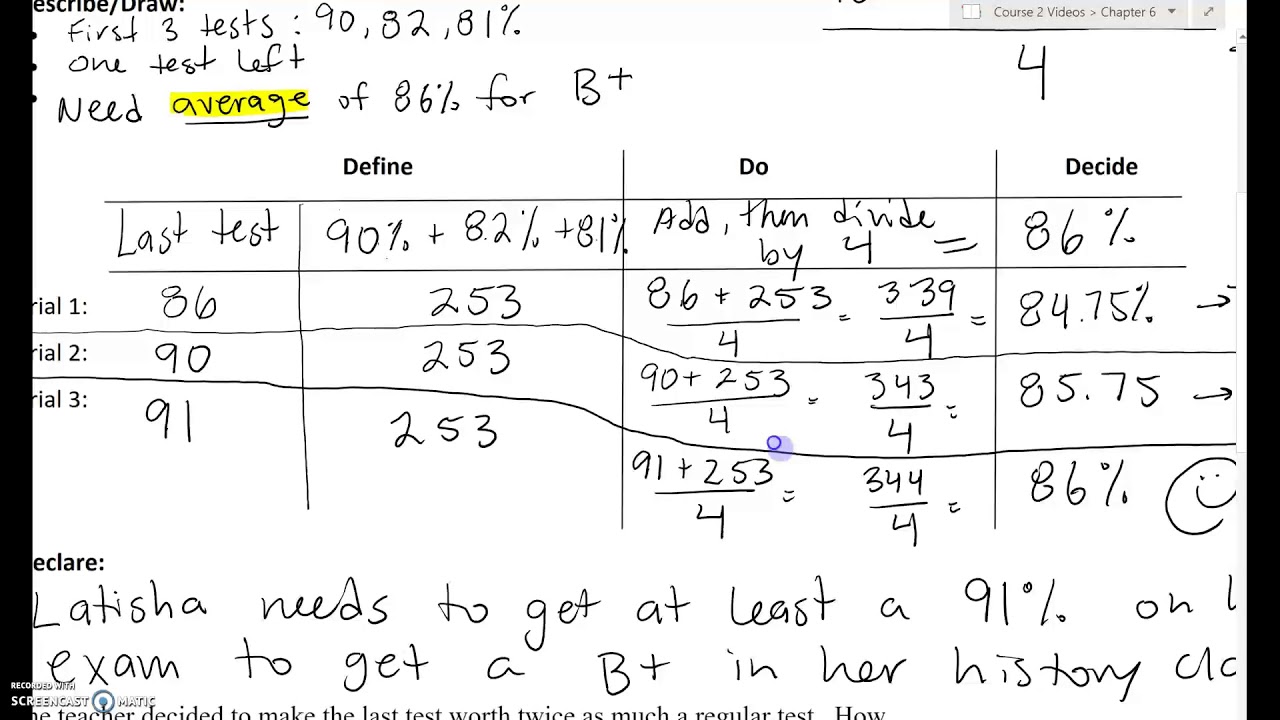 escribe/Draw:
Course 2 Videos > Chapter 6
First 3 tests : 90, 82, 81%
One test left
Need average of 86% for B+
4
Define Do Decide
Last test 90% + 82% + 81% Add, then divide by 4 = 86%
rial 1: 86 253 86 + 253 / 4 = 339 / 4 = 84.75% →
rial 2: 90 253 90 + 253 / 4 = 343 / 4 = 85.75 →
rial 3: 91 253 91 + 253 / 4 = 344 / 4 = 86%
eclare:
Latisha needs to get at least a 91% on
exam to get a B+ in her history cla
RECORDED WITH
SCREENCAST MATIC
he teacher decided to make the last test worth twice as much a regular test. How